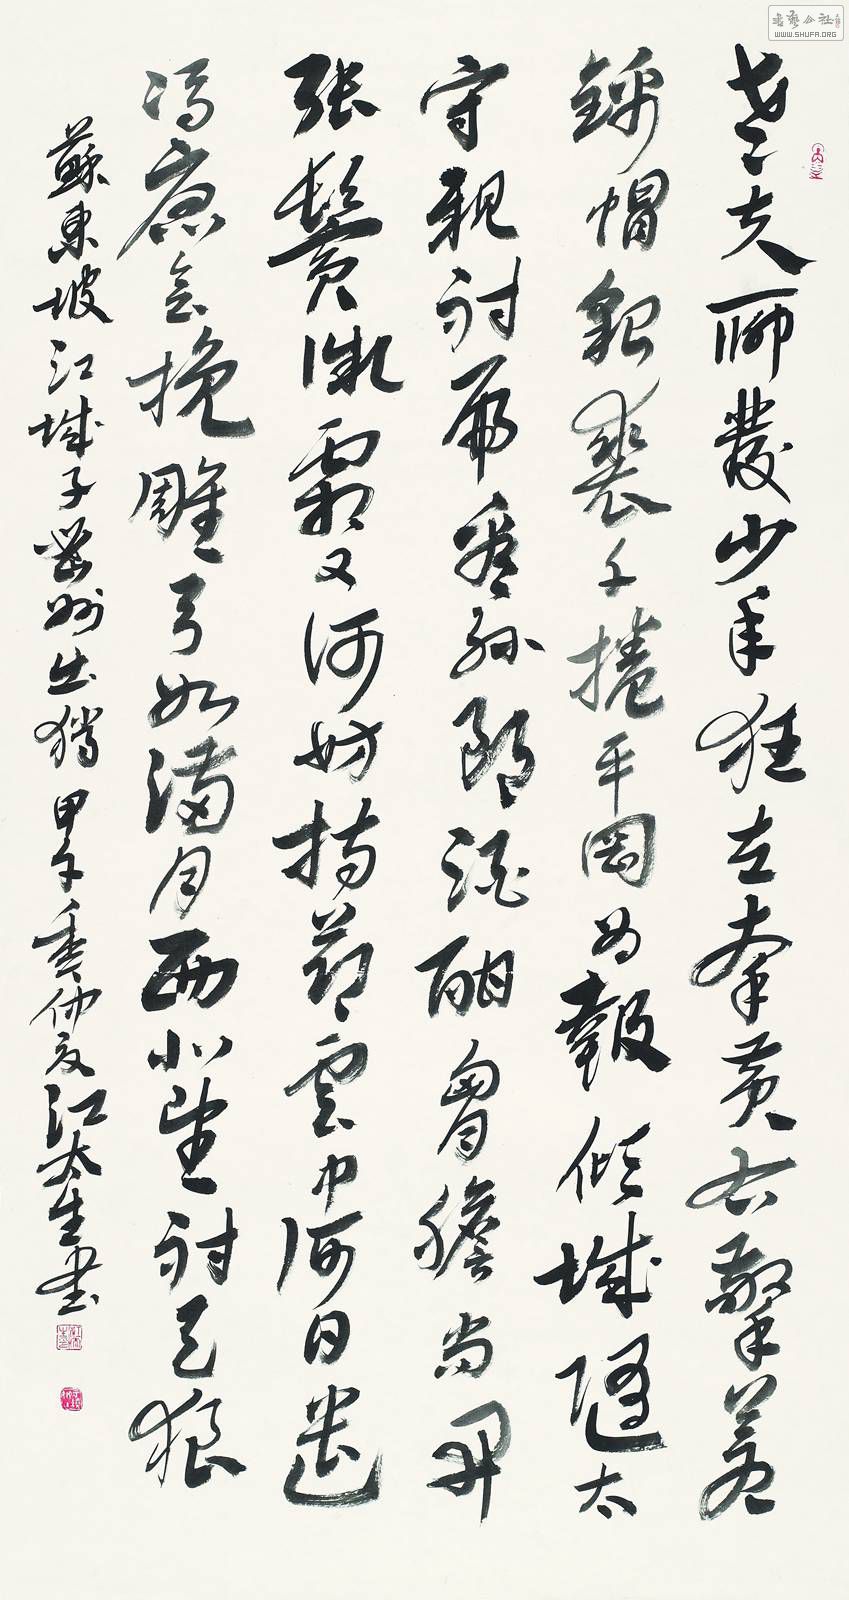 老夫聊發少年狂左牽黃右擎蒼
錦帽貂裘千捲平岡為報傾城隨太
守親射虎看孫郎酒酣胸膽尚開
張鬢微霜又何妨持節雲中何日遣
馮唐會挽雕弓如滿月西北望射天狼
蘇東坡江城子密州出獵 甲午年仲夏江太生書
書藝公社
WWW.SHUFA.ORG